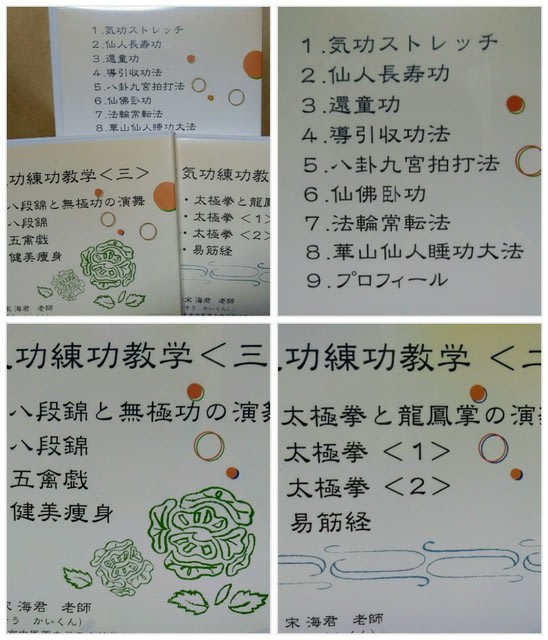 1.気功ストレッチ
2.仙人長寿功
3.還童功
4.導引収功法
5.八卦九宮拍打法
6.仙佛卧功
7.法輪常転法
8.華山仙人睡功大法
功練功教学<三>
八段錦と無極功の演舞
八段錦
五禽戯
健美痩身
宋 海君 老師
気功練功教
・太極拳と龍鳳
・太極拳<1>
・太極拳<2>
・易筋経
宋 海君 老師
(そう かいくん)
1.気功ストレッチ
2.仙人長寿功
3.還童功
4.導引収功法
5.八卦九宮拍打法
6.仙佛卧功
7.法輪常転法
8.華山仙人睡功大法
9.プロフィール
功練功教学<三
八段錦と無極功の演舞
八段錦
五禽戯
健美痩身
宋 海君 老師
そう かいくん)
功練功教学<二
太極拳と龍鳳掌の演
太極拳<1>
太極拳<2>
易筋経
宋 海君 老師